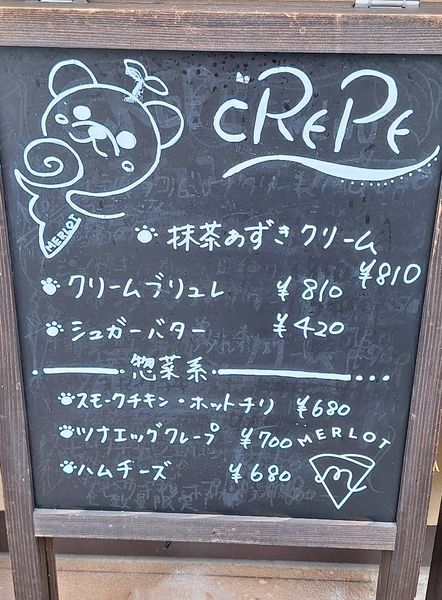 CREPE
MERLOT
抹茶あずきクリーム
¥810
クリームブリュレ ¥810
シュガーバター ¥420
惣菜系
スモークチキン・ホットチリ ¥680
ツナエッグクレープ ¥700
MERLOT
ハムチーズ ¥680
数量限定